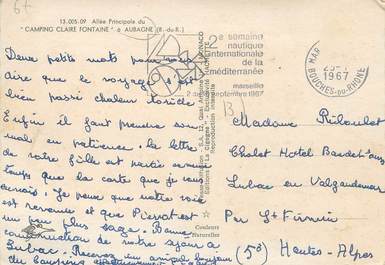 13.005.09 Allée Principale du
" CAMPING CLAIRE FONTAINE " à AUBAGNE (B.-du-R.)
2e semaine
nautique
internationale
de la
méditerranée
marseille
2 septembre 1967
MAR
1967
BOUCHES-DU-RHONE
Deux petits mots pour vous
dire que le voyage s'est
bien passé chaleur torride.
Enfin il faut prendre son
mal en patience. la lettre
de votre fille est partie en même
temps que la carte que je vous
envoie. Je pense que votre voix
est revenue et que Pierrot est
un peu plus sage. Bonne
continuation de votre séjour à
Lubac. Recevez un amical bonjour
du camping
Editions "La Cigogne"
Reproduction interdite
Couleurs
Naturelles
Madame
Chalet Hotel
Lubac en Valgaudemar
Par St Firmin
(5e) Hautes-Alpes